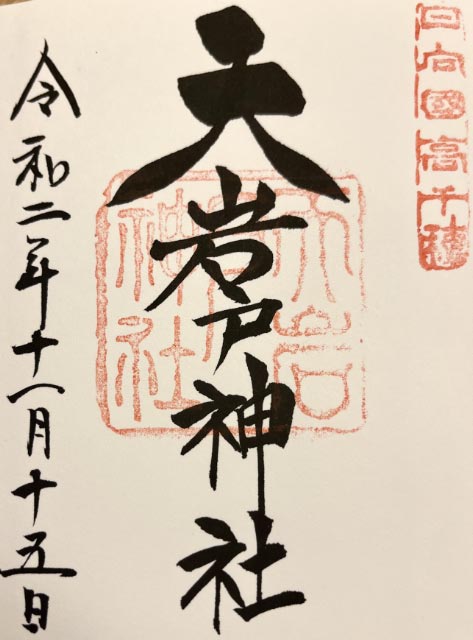 日向國高千穂
天岩戸神社
天岩
戸
神社
令和二年十一月十五日